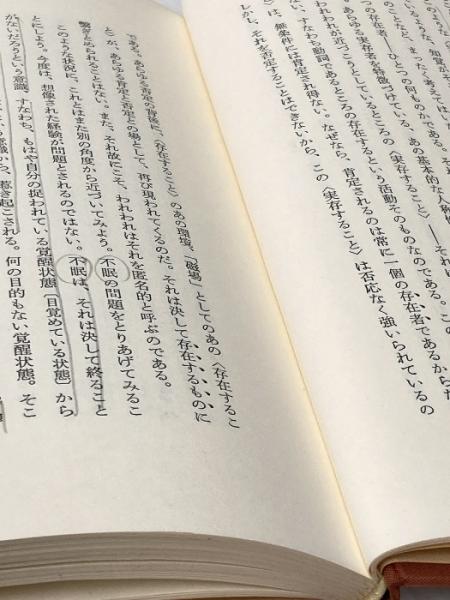 このような、知覚がそ
のことすれど、まったく考えてはい
つの存在者――ひとつの何ものかである。それ
われわれが近づこうとしている、あの基本的な人称性
、あらゆる実存者を特徴づけている、あの
、すなわち動詞であるところの存在するという活動そのものなのである。この
〉は、無条件には肯定され得ない。なぜなら、肯定されるのは常に一個の存在者であるからだ
しかし、それを否定することはできないから、この〈実存すること〉は否応なく強いられているの
である。あらゆる否定の背後に、〈存在すること〉のあの環境、「磁場」としてのあの〈存在するこ
と〉が、あらゆる肯定と否定との場として、再び現われてくるのだ。それは決して存在するものに
繋ぎとめられることはない。また、それ故にこそ、われわれはそれを匿名的と呼ぶのである。
このような状況に、これとはまた別の角度から近づいてみよう。不眠の問題をとりあげてみるこ
とにしよう。今度は、想像された経験が問題とされるのではない。不眠は、それは決して終ること
がないだろうという意識、すなわち、もはや自分の捉われている覚醒状態〔目覚めている状態〕から
意識から、惹き起こされる。何の目的もない覚醒状態。そこ